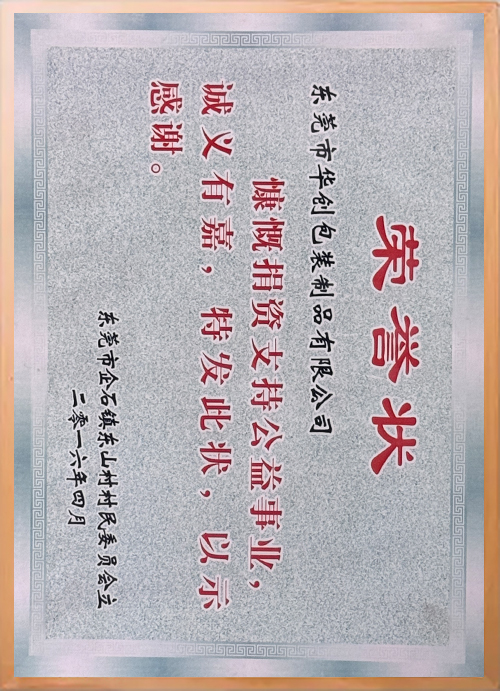 荣誉状
东莞市华创包装制品有限公司
慷慨捐资支持公益事业，
诚义有嘉，特发此状，以示
感谢。
东莞市企石镇东山村村民委员会立
二零一六年四月